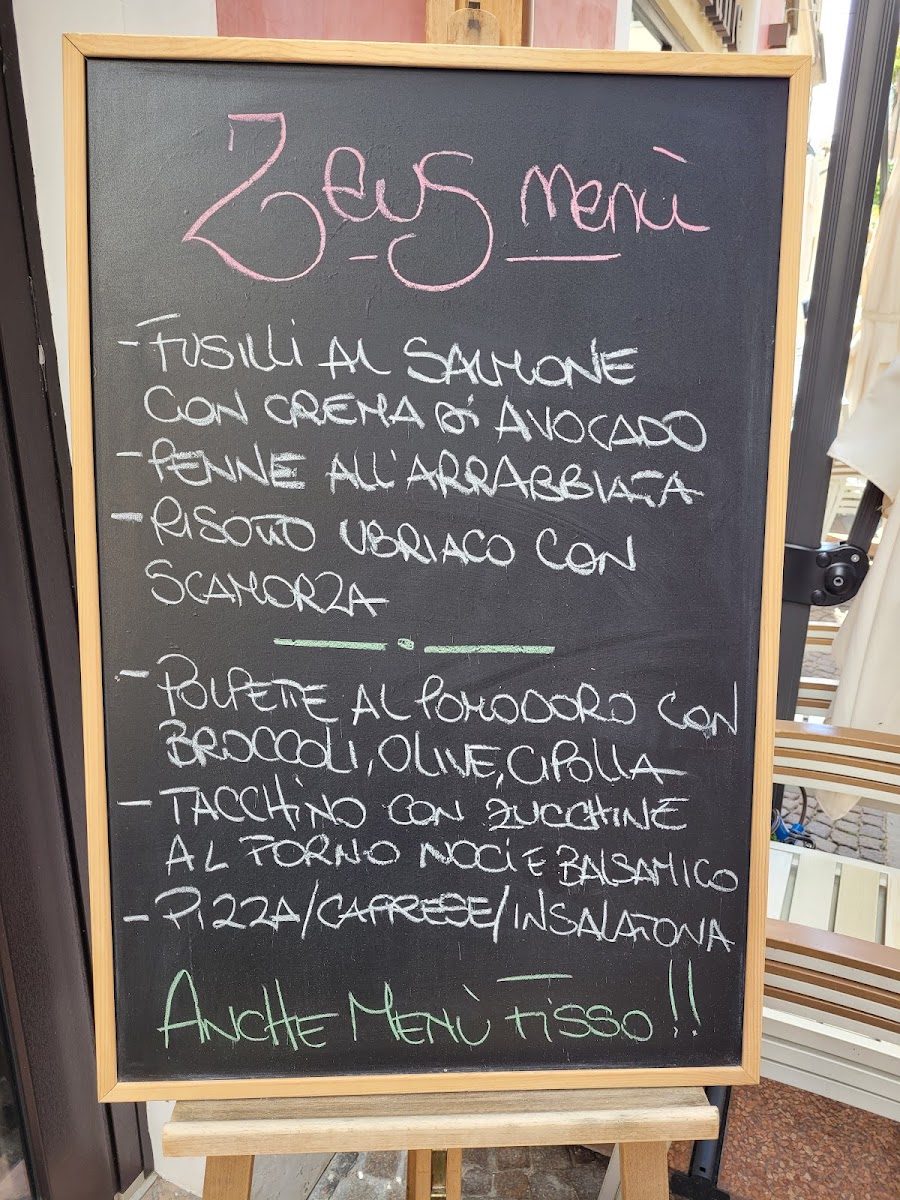 Zeus menù
- FUSILLI AL SALMONE
CON CREMA di AVOCADO
- PENNE ALL'ARRABBIATA
- RISOTTO UBRIACO CON
SCAMORZA
- POLPETTE AL POMODORO CON
BROCCOLI, OLIVE, CIPOLLA
- TACCHINO CON ZUCCHINE
AL FORNO NOCI E BALSAMICO
- PIZZA/CAPRESE/INSALATONA
ANCHE MENÙ FISSO!!